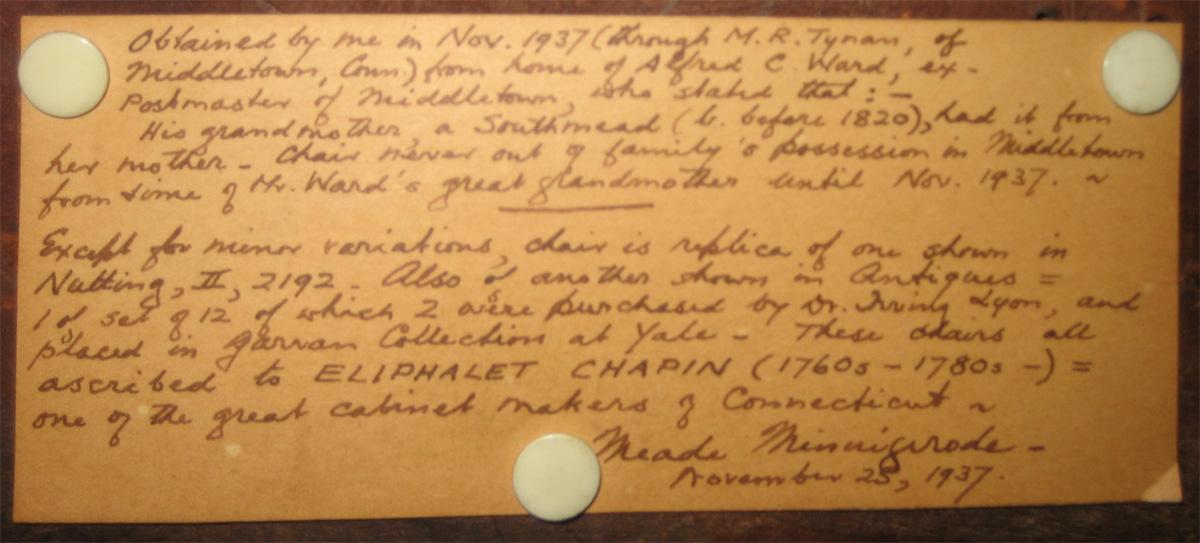 Obtained by me in Nov. 1937 (through M. R. Tynan, of
Middletown, Conn.) from home of Alfred C. Ward, ex-
Postmaster of Middletown, who stated that :-
His grandmother, a Southmead (b. before 1820), had it from
her mother - Chair never out of family's possession in Middletown
from time of Mr. Ward's great grandmother until Nov. 1937. ~
Except for minor variations, chair is replica of one shown in
Nutting, II, 2192 - Also of another shown in Antiques =
1 of set of 12 of which 2 were purchased by Dr. Irving Lyon, and
placed in Garvan Collection at Yale - These chairs all
ascribed to ELIPHALET CHAPIN (1760s - 1780s -) =
one of the great cabinet makers of Connecticut ~
Meade Minnigerode -
November 25, 1937.